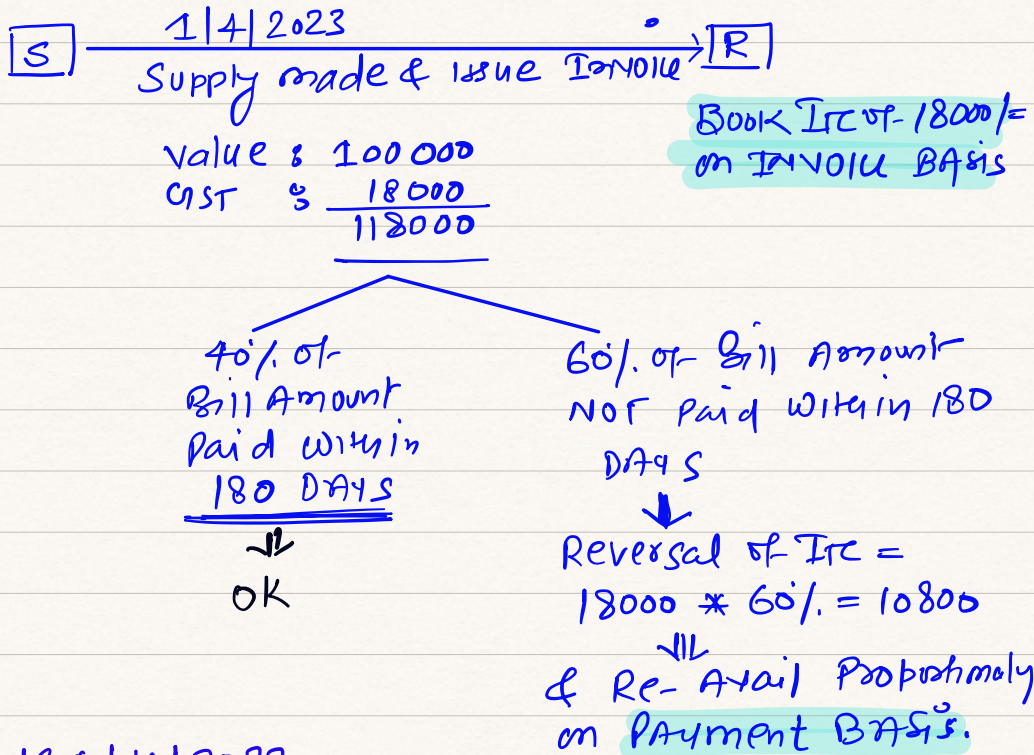 1|4|2023
S
R
Supply made & issue Invoice
Book ITC of 18000/=
on INVOICE BASIS
Value : 100000
GST : 18000
118000
40% of
Bill Amount
Paid within
180 DAYS
OK
60% of Bill Amount
NOT Paid within 180
DAYS
Reversal of ITC =
18000 * 60% = 10800
& Re-Avail Proportionaly
on PAYMENT BASIS.